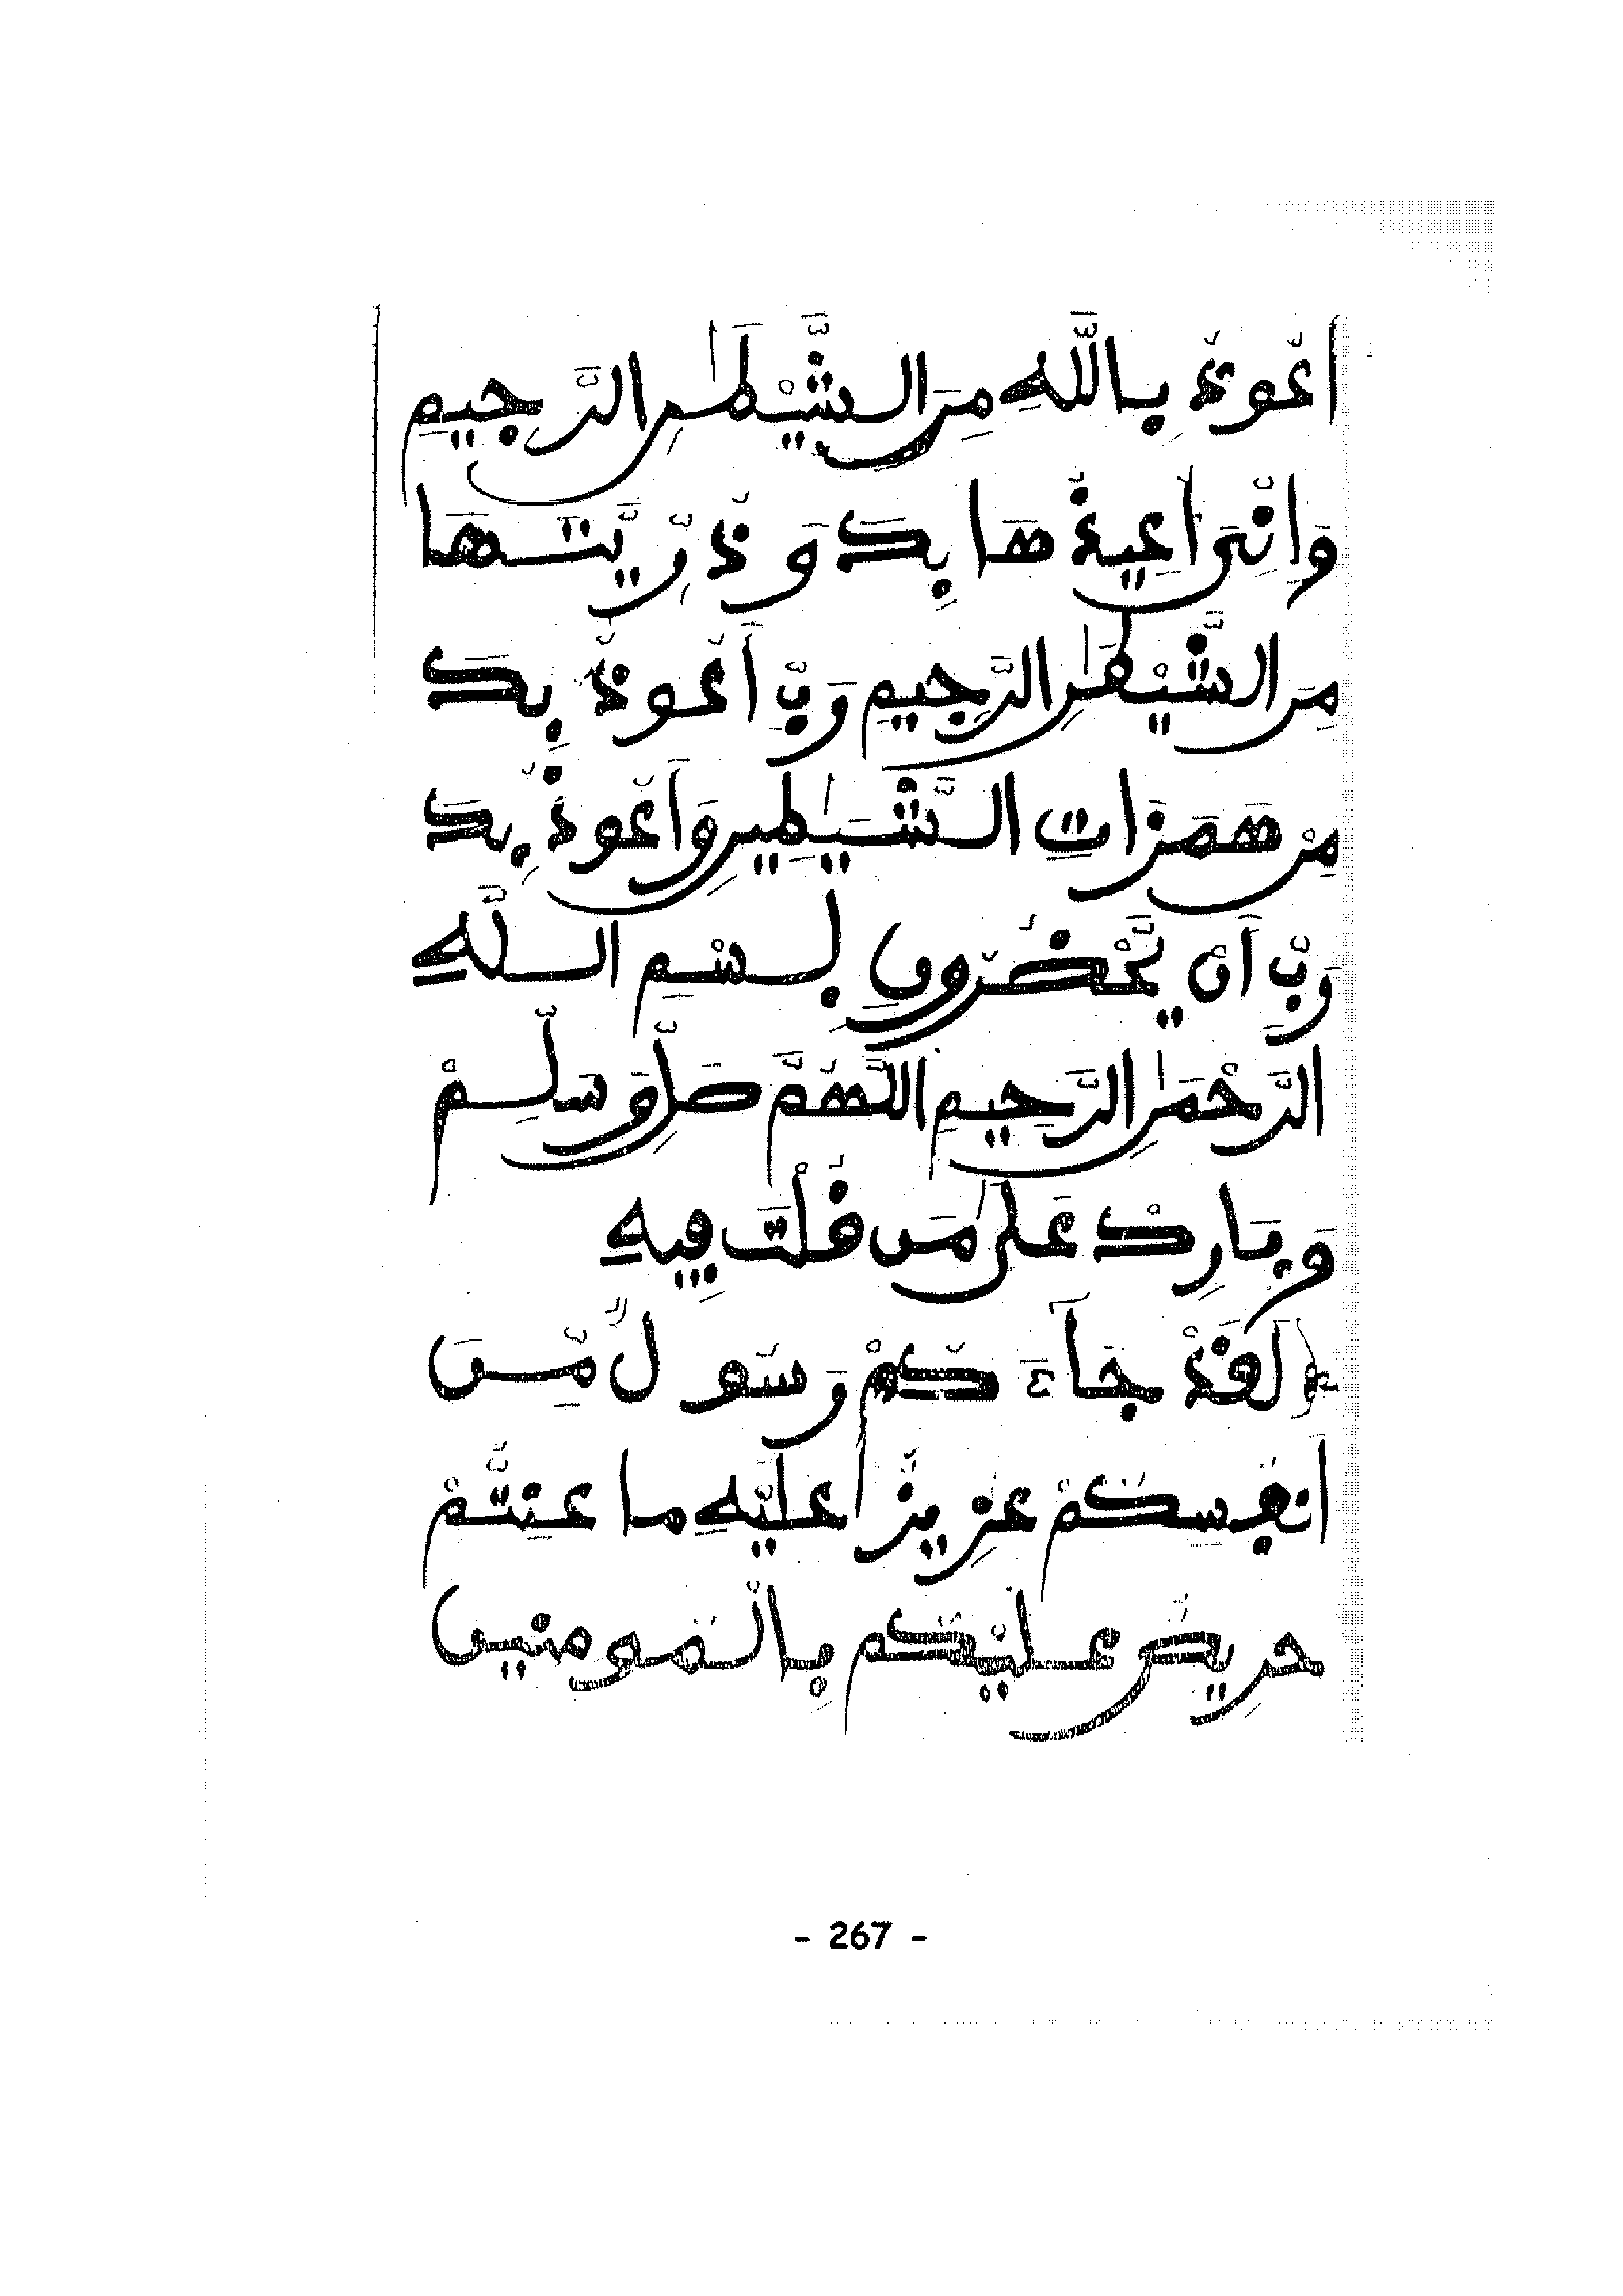 أَعُوذُ بِاللَّهِ مِنَ الشَّيْطَٰنِ الرَّجِيمِ
وَإِنِّيَ أُعِيذُهَا بِكَ وَذُرِّيَّتَهَا
مِنَ الشَّيْطَٰنِ الرَّجِيمِ رَبِّ أَعُوذُ بِكَ
مِنْ هَمَزَاتِ الشَّيَٰطِينِ وَأَعُوذُ بِكَ
رَبِّ أَنْ يَّحْضُرُونِ بِسْمِ اللَّهِ
الرَّحْمَٰنِ الرَّحِيمِ اللَّهُمَّ صَلِّ وَسَلِّمْ
وَبَارِكْ عَلَىٰ مَن قُلْتَ فِيهِ
لَقَدْ جَآءَكُمْ رَسُولٌ مِّنَ
اَنفُسِكُمْ عَزِيزٌ عَلَيْهِ مَا عَنِتُّمْ
حَرِيصٌ عَلَيْكُم بِالْمُومِنِينَ
- 267 -